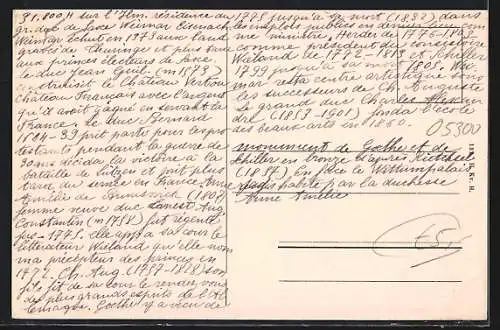 31.800 H sur l'Ilm. résidence du
gr. duc de Saxe Weimar Eisenach
Weimar échut en 1373 aux land
graves de Thuringe et plus tard
aux princes électeurs de Saxe.
le duc Jean Guil. (m 1573)
construisit le Château
Château Français avec l'argent
qu'il avait gagné en servant la
France. Le duc Bernard
1604-39 prit parti pour les pro
testants pendant la guerre de
30 ans décida la victoire à la
bataille de Lutzen et prit plus
tard du service en France. Anne
Amélie de Brunswick (1807)
femme veuve duc Ernest Aug.
Constantin (m 1758) fut régente
jus- 1775. elle app. à sa cour le
littérateur Wieland qu'elle nom
ma précepteur des princes en
1772. Ch. Aug (1757-1828) son
fils fit de sa cour le rendez vous
des plus grands esprits de l'Al
lemagne. Goethe y a vécu de
1775 jusqu'à sa mort (1832) dans
les emplois publics en dernier comme
ministre. Herder de 1776-1803
comme président du consistoire
Wieland de 1772-1813 et Schiller
1799 jusqu'à sa mort 1805.
mar resta centre artistique sous
les successeurs de Ch. Auguste
Le grand duc Charles Alexan
dre (1853-1901) fonda l'école
des beaux arts en 1860.
05300
monument de Goethe et de
Schiller en bronze d'après Rietschel
(1857) en face le Wittumpalais
habité par la duchesse
Anne Amélie